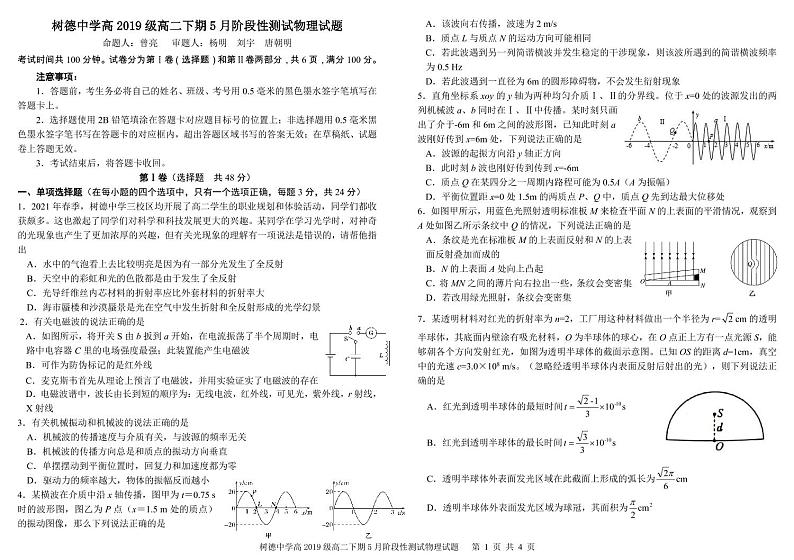 树德中学高 2019 级高二下期 5 月阶段性测试物理试题
命题人：曾亮 审题人：杨明 刘宇 唐朝明
考试时间共 100 分钟。试卷分为第Ⅰ卷（选择题）和第Ⅱ卷两部分，共 6 页，满分 100 分。
注意事项：
1．答题前，考生务必将自己的姓名、班级、考号用 0.5 毫米的黑色墨水签字笔填写在
答题卡上。
2．选择题使用 2B 铅笔填涂在答题卡对应题目标号的位置上；非选择题用 0.5 毫米黑
色墨水签字笔书写在答题卡的对应框内，超出答题区域书写的答案无效；在草稿纸、试题
卷上答题无效。
3．考试结束后，将答题卡收回。
第Ⅰ卷（选择题 共 48 分）
一、单项选择题（在每小题的四个选项中，只有一个选项正确，每题 3 分，共 24 分）
1．2021 年春季，树德中学三校区均开展了高二学生的职业规划和体验活动，同学们都收
获颇多。这也激起了同学们对科学和科技发展更大的兴趣。某同学在学习光学时，对神奇
的光现象也产生了更加浓厚的兴趣，但有关光现象的理解有一项说法是错误的，请帮他指
出
A．水中的气泡看上去比较明亮是因为有一部分光发生了全反射
B．天空中的彩虹和光的色散都是由于发生了全反射
C．光导纤维丝内芯材料的折射率应比外套材料的折射率大
D．海市蜃楼和沙漠蜃景是光在空气中发生折射和全反射形成的光学幻景
2．有关电磁波的说法正确的是
A．如图所示，将开关 S 由 b 扳到 a 开始，在电流振荡了半个周期时，电
路中电容器 C 里的电场强度最强；此装置能产生电磁波
B．可作为防伪标记的是红外线
C．麦克斯韦首先从理论上预言了电磁波，并用实验证实了电磁波的存在
D．电磁波谱中，波长由长到短的顺序为：无线电波，红外线，可见光，紫外线，r 射线，
X 射线
b a G
S
C L
3．有关机械振动和机械波的说法正确的是
A．机械波的传播速度与介质有关，与波源的频率无关
B．机械波的传播方向总是和质点的振动方向垂直
C．单摆摆动到平衡位置时，回复力和加速度都为零
D．驱动力的频率越大，物体的振幅反而越小
4．某横波在介质中沿 x 轴传播，图甲为 t＝0.75 s
时的波形图，图乙为 P 点（x＝1.5 m 处的质点）
的振动图像，那么下列说法正确的是
甲 乙
A．该波向右传播，波速为 2 m/s
B．质点 L 与质点 N 的运动方向可能相同
C．若此波遇到另一列简谐横波并发生稳定的干涉现象，则该波所遇到的简谐横波频率
为 0.5 Hz
D．若此波遇到一直径为 6m 的圆形障碍物，不会发生衍射现象
5．直角坐标系 xoy 的 y 轴为两种均匀介质Ⅰ、Ⅱ的分界线。位于 x=0 处的波源发出的两
列机械波 a、b 同时在Ⅰ、Ⅱ中传播。某时刻只画
出了介于-6m 和 6m 之间的波形图，已知此时刻 a
波刚好传到 x=6m 处，下列说法正确的是
A．波源的起振方向沿 y 轴正方向
B．此时刻 b 波也刚好传到传到 x=-6m
C．质点 Q 在某四分之一周期内路程可能为 0.5A（A 为振幅）
D．平衡位置距 x=0 处 1.5m 的两质点 P、Q 中，质点 Q 先到达最大位移处
6．如图甲所示，用蓝色光照射透明标准板 M 来检查平面 N 的上表面的平滑情况，观察到
A 处如图乙所示条纹中 Q 的情况，下列说法正确的是
A．条纹是光在标准板 M 的上表面反射和 N 的上表
面反射叠加而成的
B．N 的上表面 A 处向上凸起
C．将 MN 之间的薄片向右拉出一些，条纹会变密集
D．若改用绿光照射，条纹会变密集
M
N
A
甲
Q
乙
7．某透明材料对红光的折射率为 n=2，工厂用这种材料做出一个半径为 r=√2 cm 的透明
半球体，其底面内壁涂有吸光材料，O 为半球体的球心，在 O 点正上方有一点光源 S，能
够朝各个方向发射红光，如图为透明半球体的截面示意图。已知 OS 的距离 d=1cm，真空
中的光速 c=3.0×10⁸ m/s。（忽略经透明半球体内表面反射后射出的光），则下列说法正
确的是
A．红光到透明半球体的最短时间 t = (√2 -1)/3 ×10⁻¹⁰s
B．红光到透明半球体的最长时间 t = √3/3 ×10⁻¹⁰s
C．透明半球体外表面发光区域在此截面上形成的弧长为 √2π/6 cm
D．透明半球体外表面发光区域为球冠，其面积为 π/2 cm²
S
d
O
树德中学高 2019 级高二下期 5 月阶段性测试物理试题 第 1 页 共 4 页